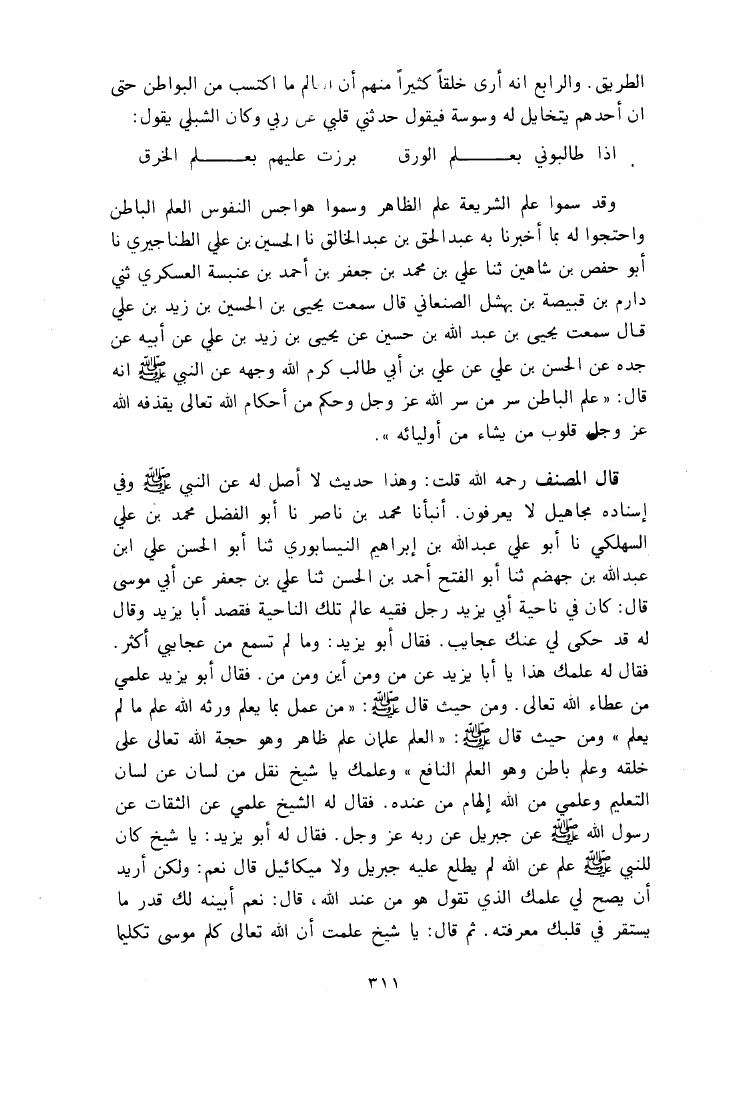 الطريق. والرابع انه أرى خلقاً كثيراً منهم أن العالم ما اكتسب من البواطن حتى
ان أحدهم يتخايل له وسوسة فيقول حدثني قلبي عن ربي وكان الشبلي يقول:
اذا طالبوني بعـــــلم الورق برزت عليهم بعـــــلم الخرق
وقد سموا علم الشريعة علم الظاهر وسموا هواجس النفوس العلم الباطن
واحتجوا له بما أخبرنا به عبدالحق بن عبدالخالق نا الحسين بن علي الطناجيري نا
أبو حفص بن شاهين ثنا علي بن محمد بن جعفر بن أحمد بن عنبسة العسكري ثني
دارم بن قبيصة بن بهشل الصنعاني قال سمعت يحيى بن الحسين بن زيد بن علي
قال سمعت يحيى بن عبد الله بن حسين عن يحيى بن زيد بن علي عن أبيه عن
جده عن الحسن بن علي عن علي بن أبي طالب كرم الله وجهه عن النبي ﷺ انه
قال: «علم الباطن سر من سر الله عز وجل وحكم من أحكام الله تعالى يقذفه الله
عز وجل قلوب من يشاء من أوليائه».
قال المصنف رحمه الله قلت: وهذا حديث لا أصل له عن النبي ﷺ وفي
إسناده مجاهيل لا يعرفون. أنبأنا محمد بن ناصر نا أبو الفضل محمد بن علي
السهلكي نا أبو علي عبدالله بن إبراهيم النيسابوري ثنا أبو الحسن علي ابن
عبدالله بن جهضم ثنا أبو الفتح أحمد بن الحسن ثنا علي بن جعفر عن أبي موسى
قال: كان في ناحية أبي يزيد رجل فقيه عالم تلك الناحية فقصد أبا يزيد وقال
له قد حكى لي عنك عجايب. فقال أبو يزيد: وما لم تسمع من عجايبي أكثر.
فقال له علمك هذا يا أبا يزيد عن من ومن أين ومن من. فقال أبو يزيد علمي
من عطاء الله تعالى. ومن حيث قال ﷺ: «من عمل بما يعلم ورثه الله علم ما لم
يعلم» ومن حيث قال ﷺ: «العلم علمان علم ظاهر وهو حجة الله تعالى على
خلقه وعلم باطن وهو العلم النافع» وعلمك يا شيخ نقل من لسان عن لسان
التعليم وعلمي من الله إلهام من عنده. فقال له الشيخ علمي عن الثقات عن
رسول الله ﷺ عن جبريل عن ربه عز وجل. فقال له أبو يزيد: يا شيخ كان
للنبي ﷺ علم عن الله لم يطلع عليه جبريل ولا ميكائيل قال نعم: ولكن أريد
أن يصح لي علمك الذي تقول هو من عند الله، قال: نعم أبينه لك قدر ما
يستقر في قلبك معرفته. ثم قال: يا شيخ علمت أن الله تعالى كلم موسى تكليما
٣١١